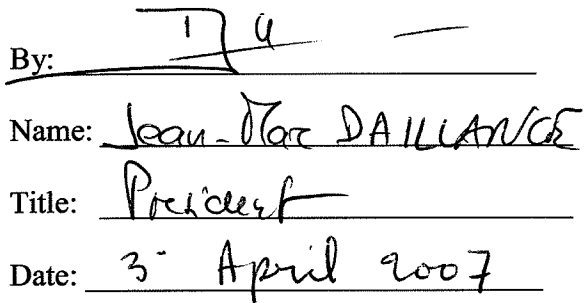 By:
Name: Jean-Marc DAILLANCE
Title: President
Date: 3 April 2007